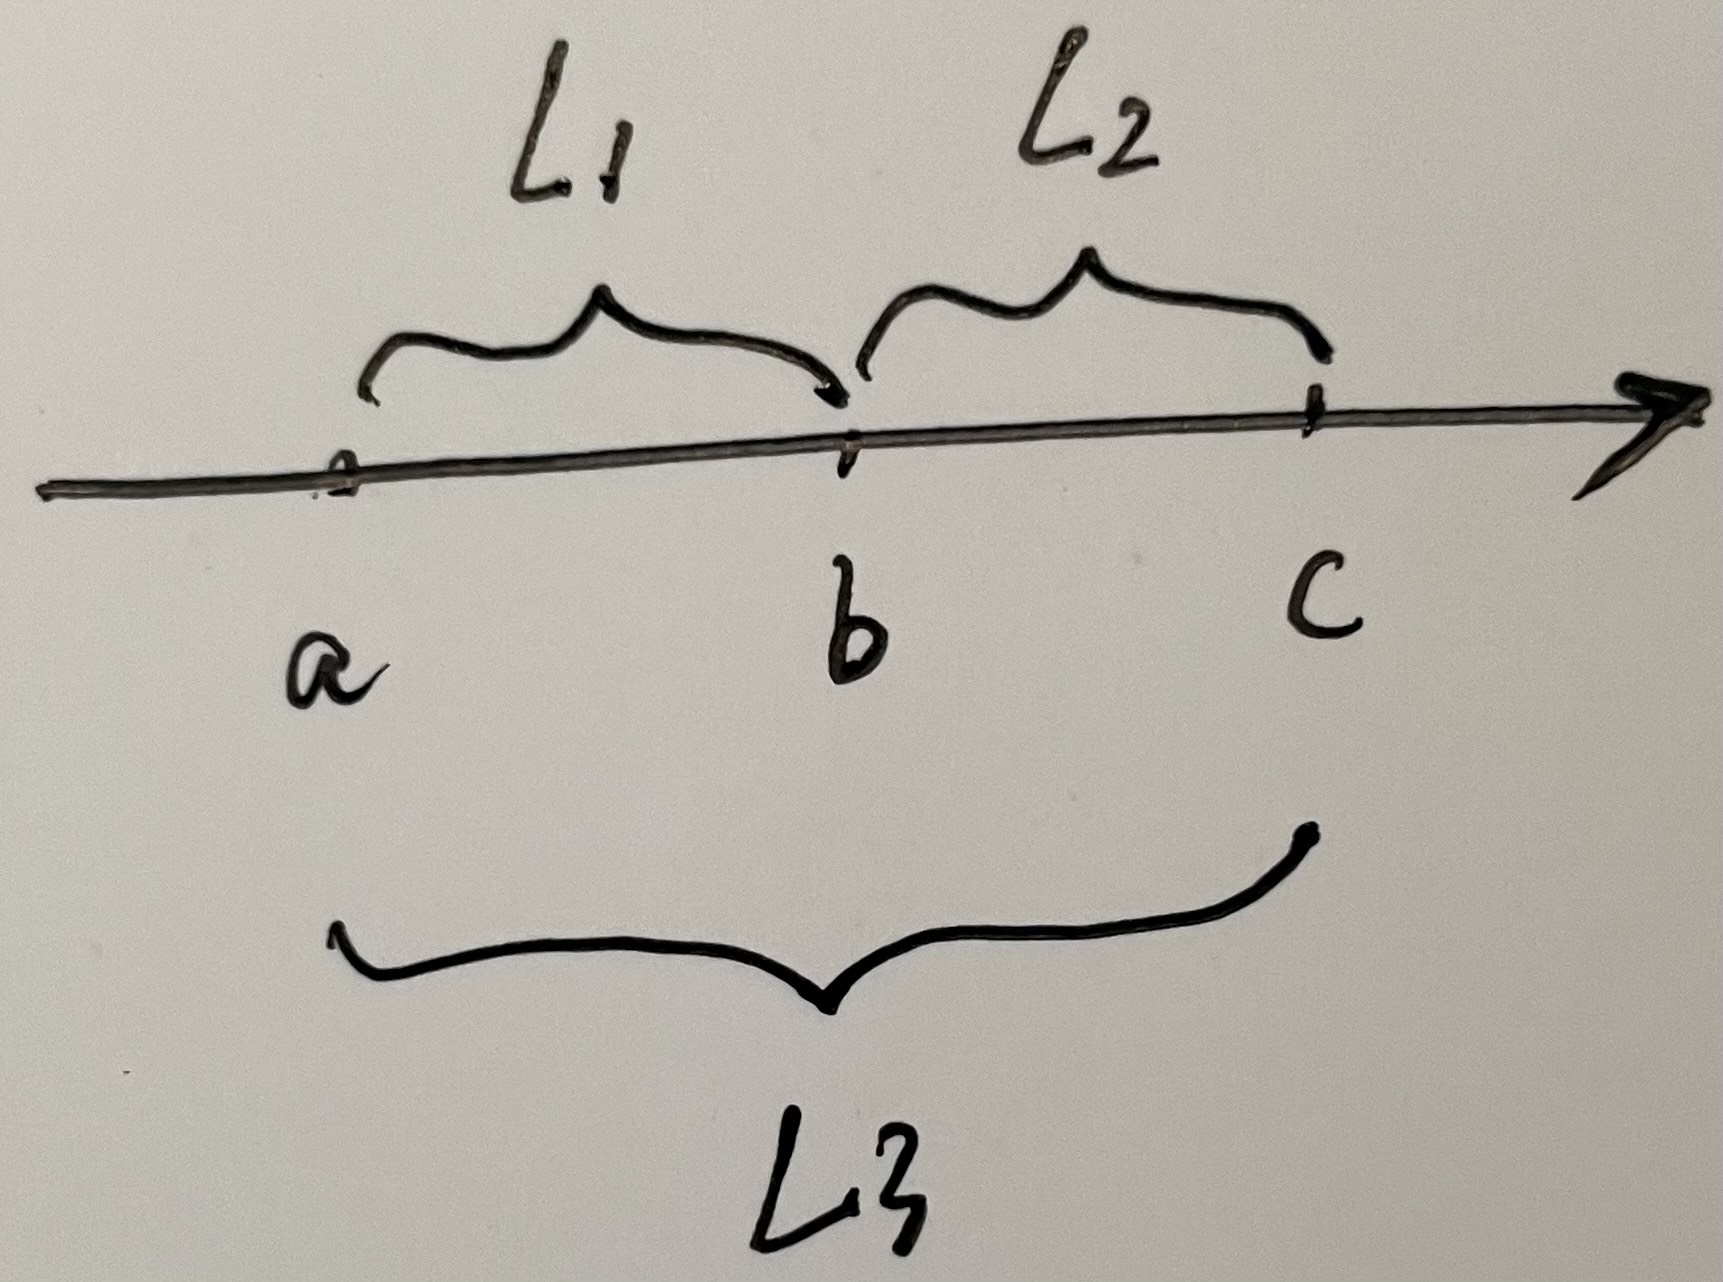 L1 L2
a b c
L3